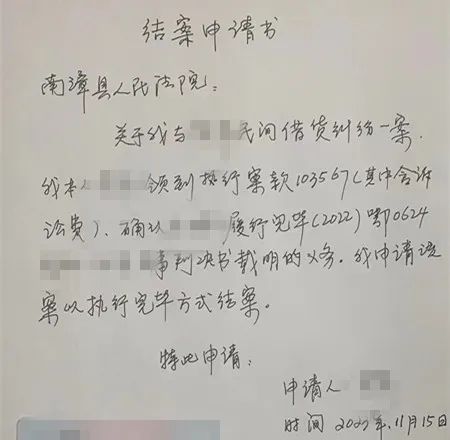 结案申请书
南漳县人民法院：
关于我与 民间借贷纠纷一案，
我本人 领到执行案款103567(其中含诉
讼费)、确认 履行完毕(2022)鄂0624
事判决书载明的义务。我申请该
案以执行完毕方式结案。
特此申请：
申请人
时间 2022年.11月15日